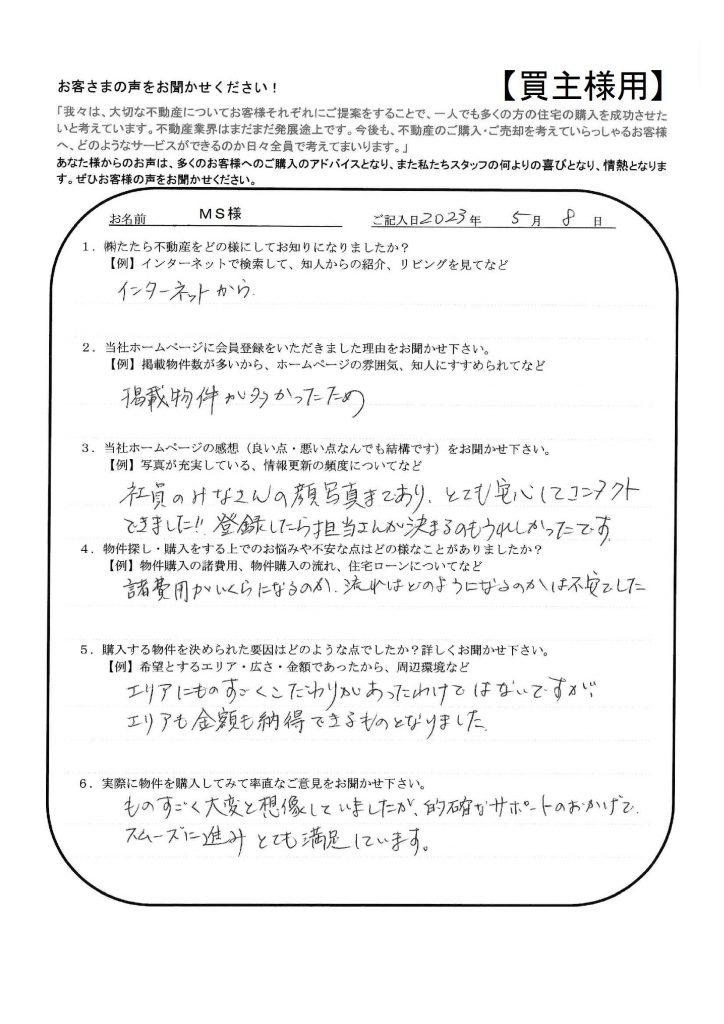 お客さまの声をお聞かせください！
【買主様用】
「我々は、大切な不動産についてお客様それぞれにご提案をすることで、一人でも多くの方の住宅の購入を成功させた
いと考えています。不動産業界はまだまだ発展途上です。今後も、不動産のご購入・ご売却を考えていらっしゃるお客様
へ、どのようなサービスができるのか日々全員で考えてまいります。」
あなた様からのお声は、多くのお客様へのご購入のアドバイスとなり、また私たちスタッフの何よりの喜びとなり、情熱となりま
す。ぜひお客様の声をお聞かせください。
お名前 ＭＳ様 ご記入日2023年 5月 8日
１．㈱たたら不動産をどの様にしてお知りになりましたか？
【例】インターネットで検索して、知人からの紹介、リビングを見てなど
インターネットから.
２．当社ホームページに会員登録をいただきました理由をお聞かせ下さい。
【例】掲載物件数が多いから、ホームページの雰囲気、知人にすすめられてなど
掲載物件が多かったため
３．当社ホームページの感想（良い点・悪い点なんでも結構です）をお聞かせ下さい。
【例】写真が充実している、情報更新の頻度についてなど
社員のみなさんの顔写真まであり、とても安心してコンタクト
できました!! 登録したら担当さんが決まるのもうれしかったです.
４．物件探し・購入をする上でのお悩みや不安な点はどの様なことがありましたか？
【例】物件購入の諸費用、物件購入の流れ、住宅ローンについてなど
諸費用がいくらになるのか、流れはどのようになるのかは不安でした
５．購入する物件を決められた要因はどのような点でしたか？詳しくお聞かせ下さい。
【例】希望とするエリア・広さ・金額であったから、周辺環境など
エリアにものすごくこだわりがあったわけではないですが、
エリアも金額も納得できるものとなりました.
６．実際に物件を購入してみて率直なご意見をお聞かせ下さい。
ものすごく大変と想像していましたが、的確なサポートのおかげで.
スムーズに進みとても満足しています。